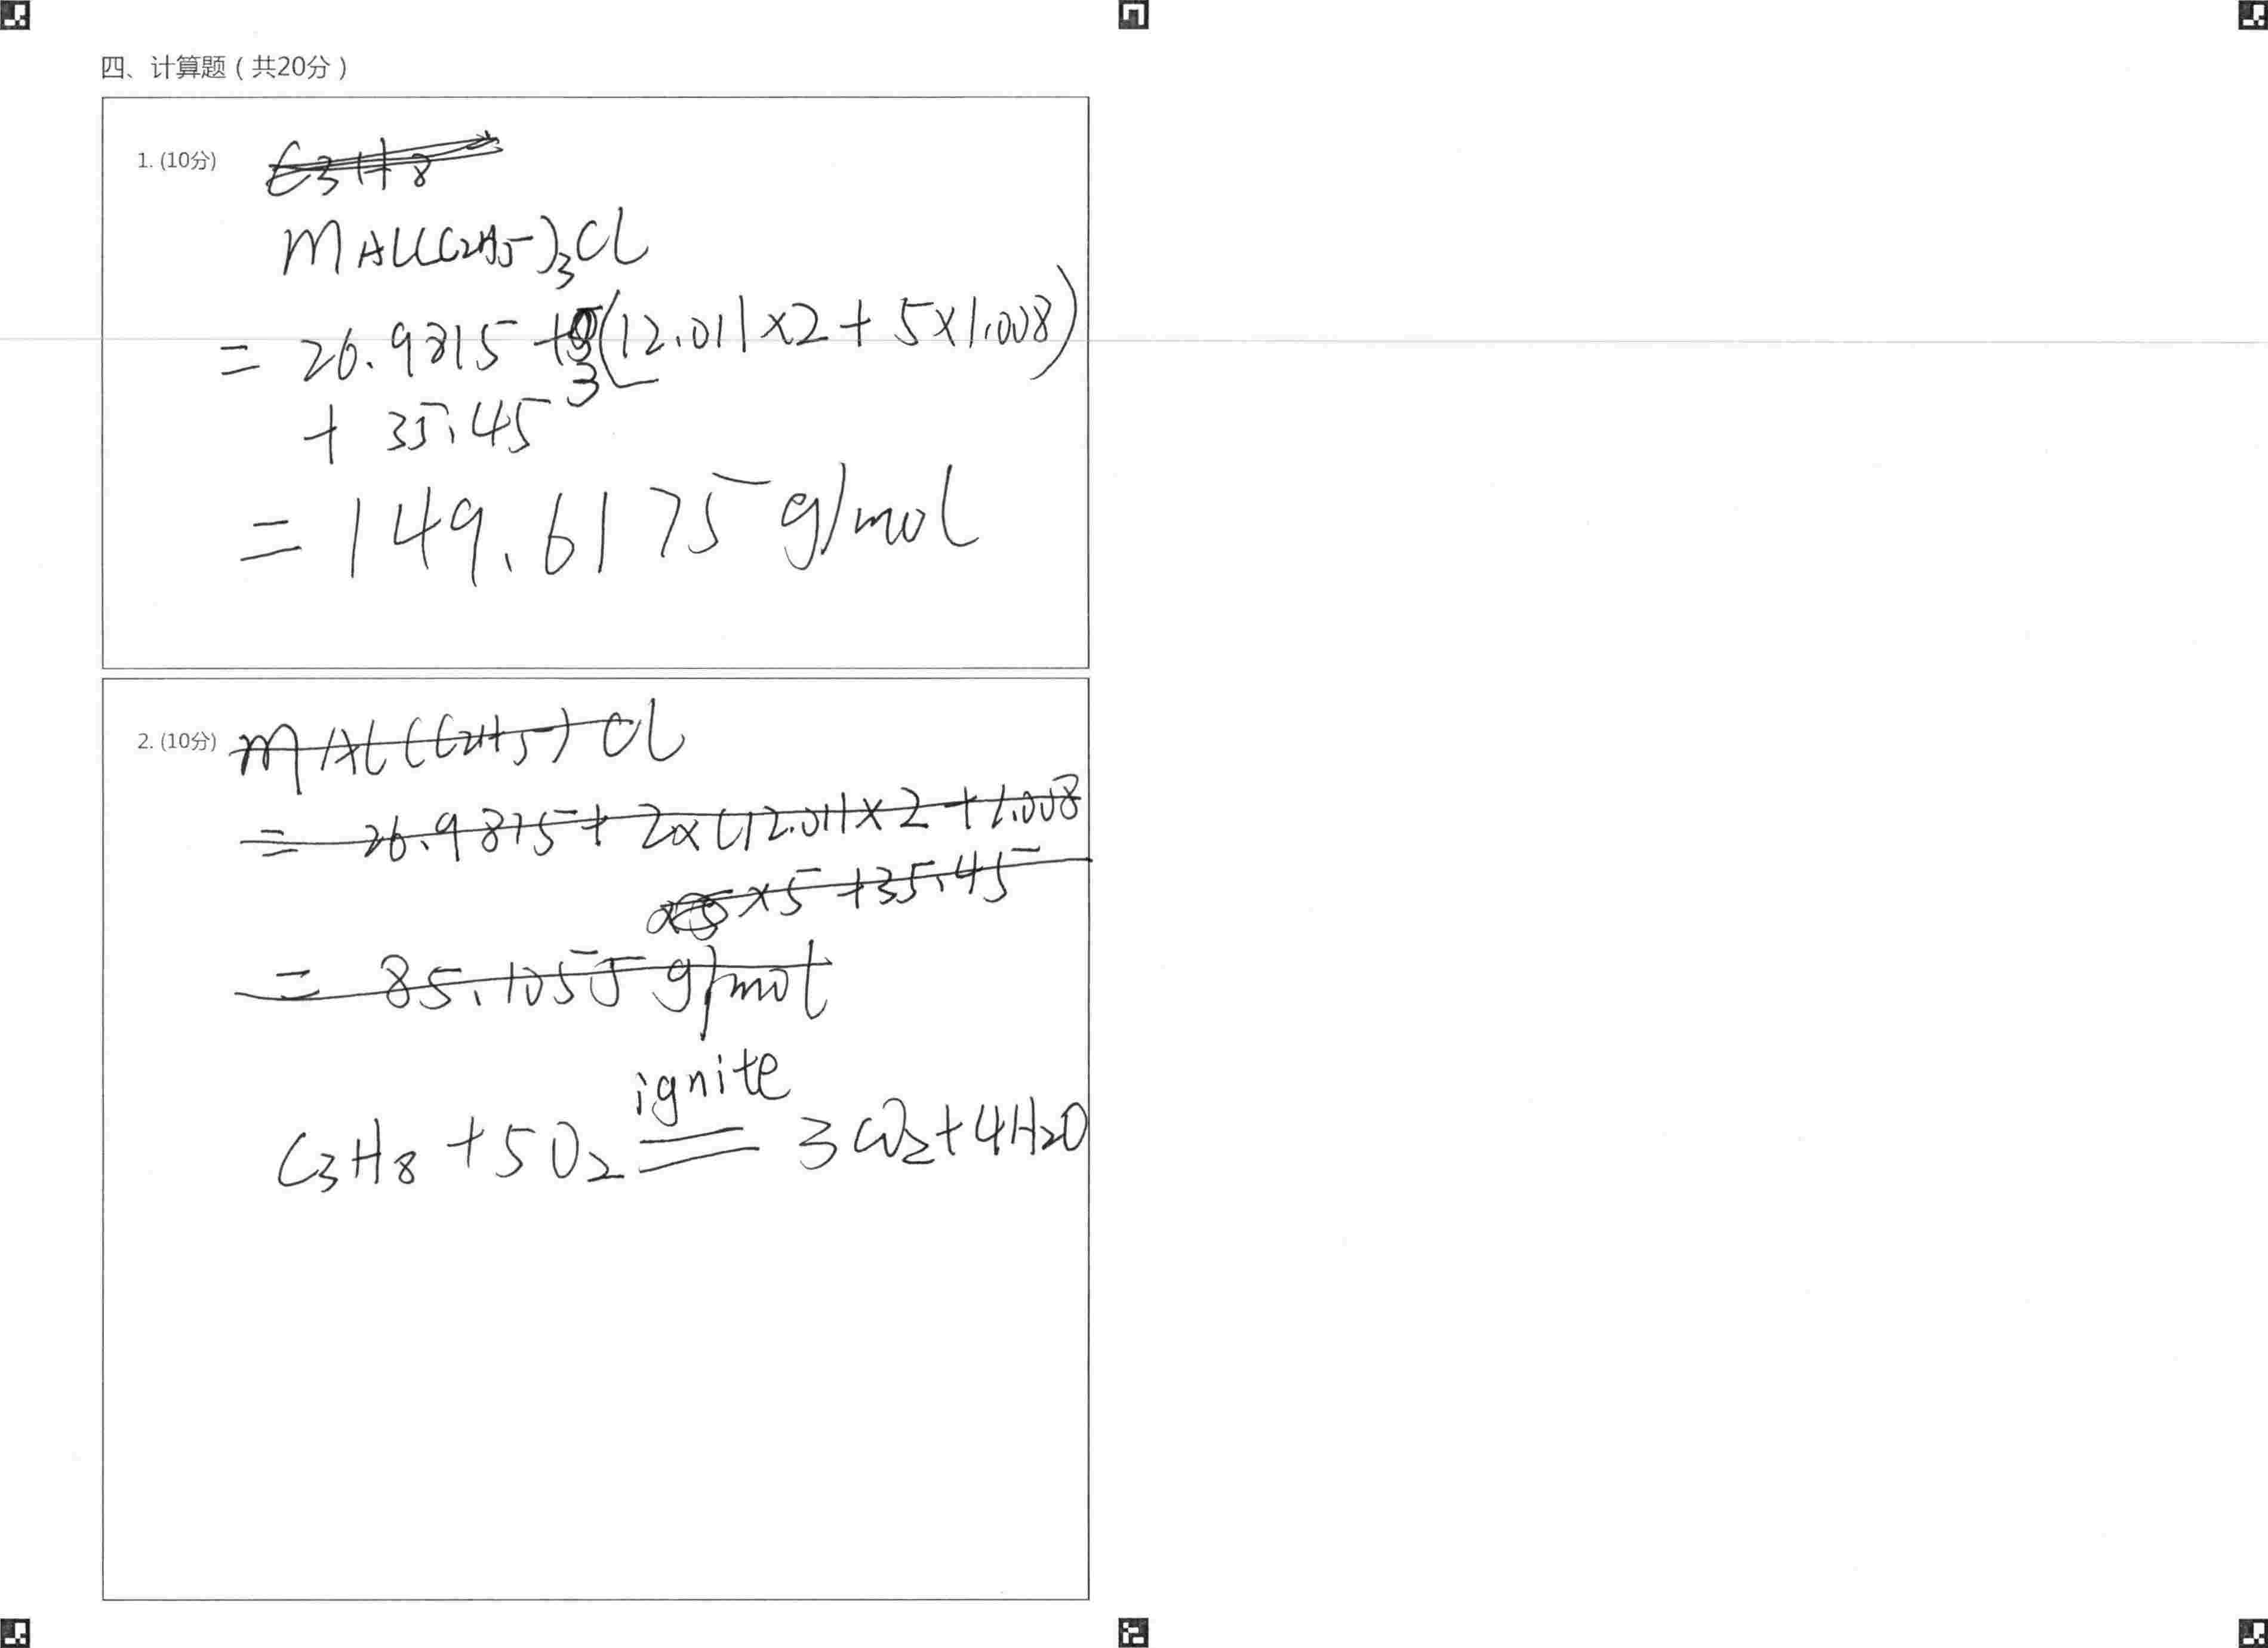 四、计算题(共20分)
1. (10分)
C3H8
M Al(C2H5)3Cl
= 26.9815 + 3(12.011×2 + 5×1.008)
+ 35.45
= 149.6175 g/mol
2. (10分) M Al(C2H5)Cl
= 26.9815 + 2×(12.011×2 + 1.008
×5 + 35.45
= 85.1055 g/mol
ignite
C3H8 + 5O2 = 3CO2 + 4H2O